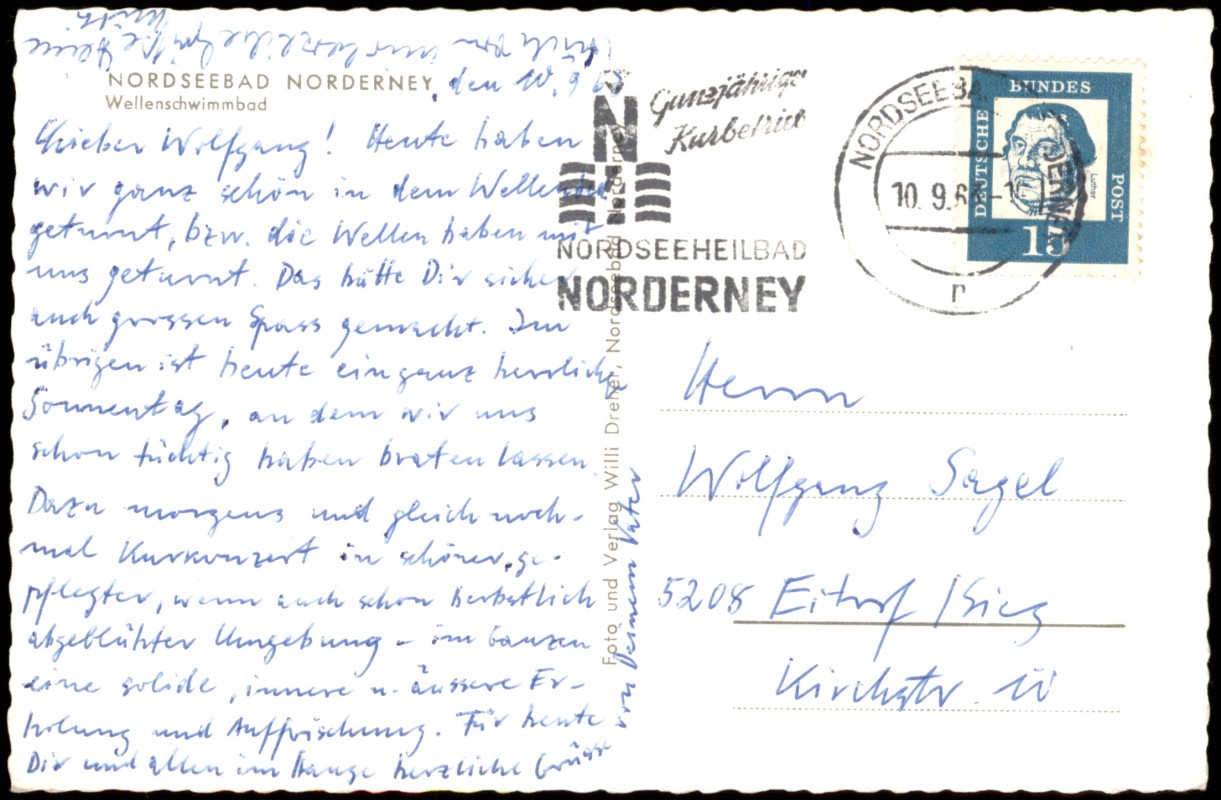 NORDSEEBAD NORDERNEY
Wellenschwimmbad
, den 10.9.6
Lieber Wolfgang! Heute haben
wir ganz schön in dem Wellenbad
geturnt, bzw. die Wellen haben mit
uns geturnt. Das hätte Dir sicher
auch grossen Spass gemacht. Im
übrigen ist heute ein ganz herrlicher
Sonnentag, an dem wir uns
schon tüchtig haben braten lassen.
Dazu morgens und gleich noch-
mal Kurkonzert in schöner, ge-
pflegter, wenn auch schon herbstlich
abgeblühter Umgebung - im Ganzen
eine solide, innere u. äussere Er-
holung und Auffrischung. Für heute
Dir und allen im Hause herzliche Grüsse
von Deinem Vater
Auch von mir herzliche Grüße Deine
Foto und Verlag Willi Dreher, Nordseebad Norderney
Ganzjähriger
Kurbetrieb
N
NORDSEEHEILBAD
NORDERNEY
NORDSEEBAD NORDERNEY
10.9.6
r
DEUTSCHE
BUNDES
POST
Luther
15
Herrn
Wolfgang Sagel
5208 Eitorf/Sieg
Kirchstr. 10